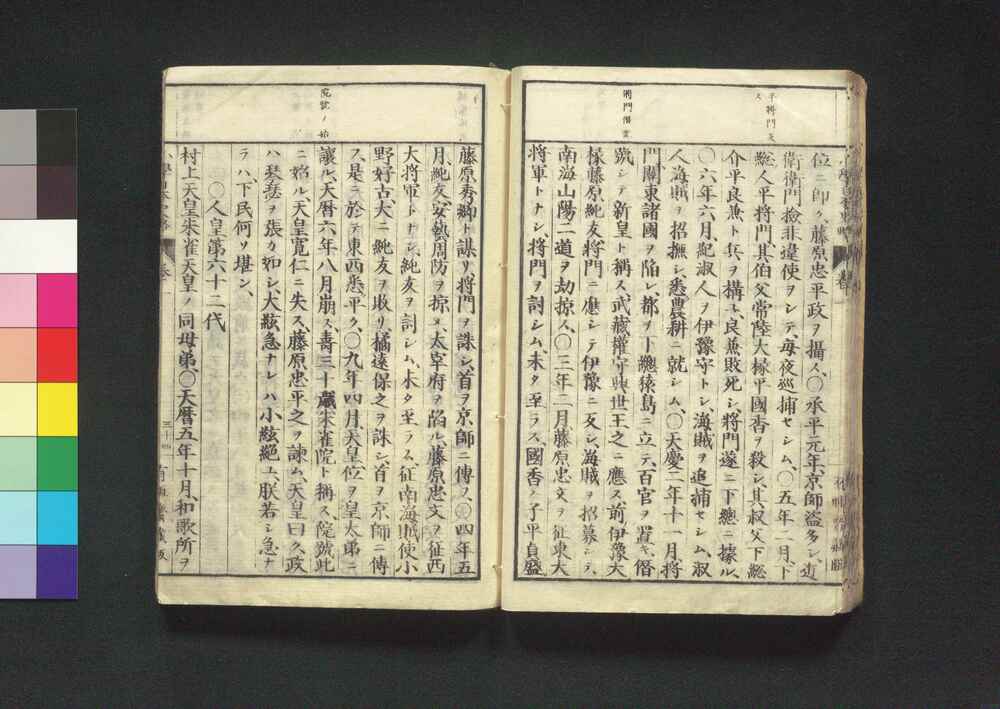 平將門反
ス
位ニ即ク、藤原忠平政ヲ攝ス、〇承平元年、京師盜多シ、近
衛衛門撿非違使ヲシテ、每夜巡捕セシム、〇五年二月、下
總人平將門、其伯父常陸大掾平國香ヲ殺シ、其叔父下總
介平良兼ト兵ヲ構フ、良兼敗死シ將門遂ニ下總ニ據ル、
〇六年六月、紀淑人ヲ伊豫守トシ海賊ヲ追捕セシム、淑
人海賊ヲ招撫シ、悉農耕ニ就シム、〇天慶二年十一月將
將門僭號
門、關東諸國ヲ陷レ、都ヲ下總猿島ニ立テ、百官ヲ置キ、僭
號シテ新皇ト稱ス、武藏權守興世王之ニ應ス、前伊豫大
掾藤原純友將門ニ應シテ伊豫ニ反シ、海賊ヲ招募シテ、
南海山陽二道ヲ劫掠ス、〇三年二月藤原忠文ヲ征東大
將軍トナシ、將門ヲ討シム、未タ至ラス、國香ノ子平貞盛
藤原秀鄕ト謀リ將門ヲ誅シ、首ヲ京師ニ傳フ、〇四年五
月、純友、安藝周防ヲ掠メ、太宰府ヲ陷ル、藤原忠文ヲ征西
大將軍トナシ、純友ヲ討シム、未タ至ラス、征南海賊使小
野好古、大ニ純友ヲ敗リ、橘遠保之ヲ誅シ首ヲ京師ニ傳
フ、是ニ於テ東西悉平ク、〇九年四月、天皇位ヲ皇太弟ニ
院號ノ始
讓ル、天曆六年八月崩ス、壽三十歲、朱雀院ト稱ス、院號此
ニ始ル、天皇寬仁ニ失ス、藤原忠平之ヲ諫ム、天皇曰ク、政
ハ琴瑟ヲ張カ如シ、大絃急ナレハ小絃絕ユ、朕若シ急ナ
ラハ、下民何ソ堪ン、
〇人皇第六十二代
村上天皇朱雀天皇ノ同母弟、〇天曆五年十月、和歌所ヲ
三十四